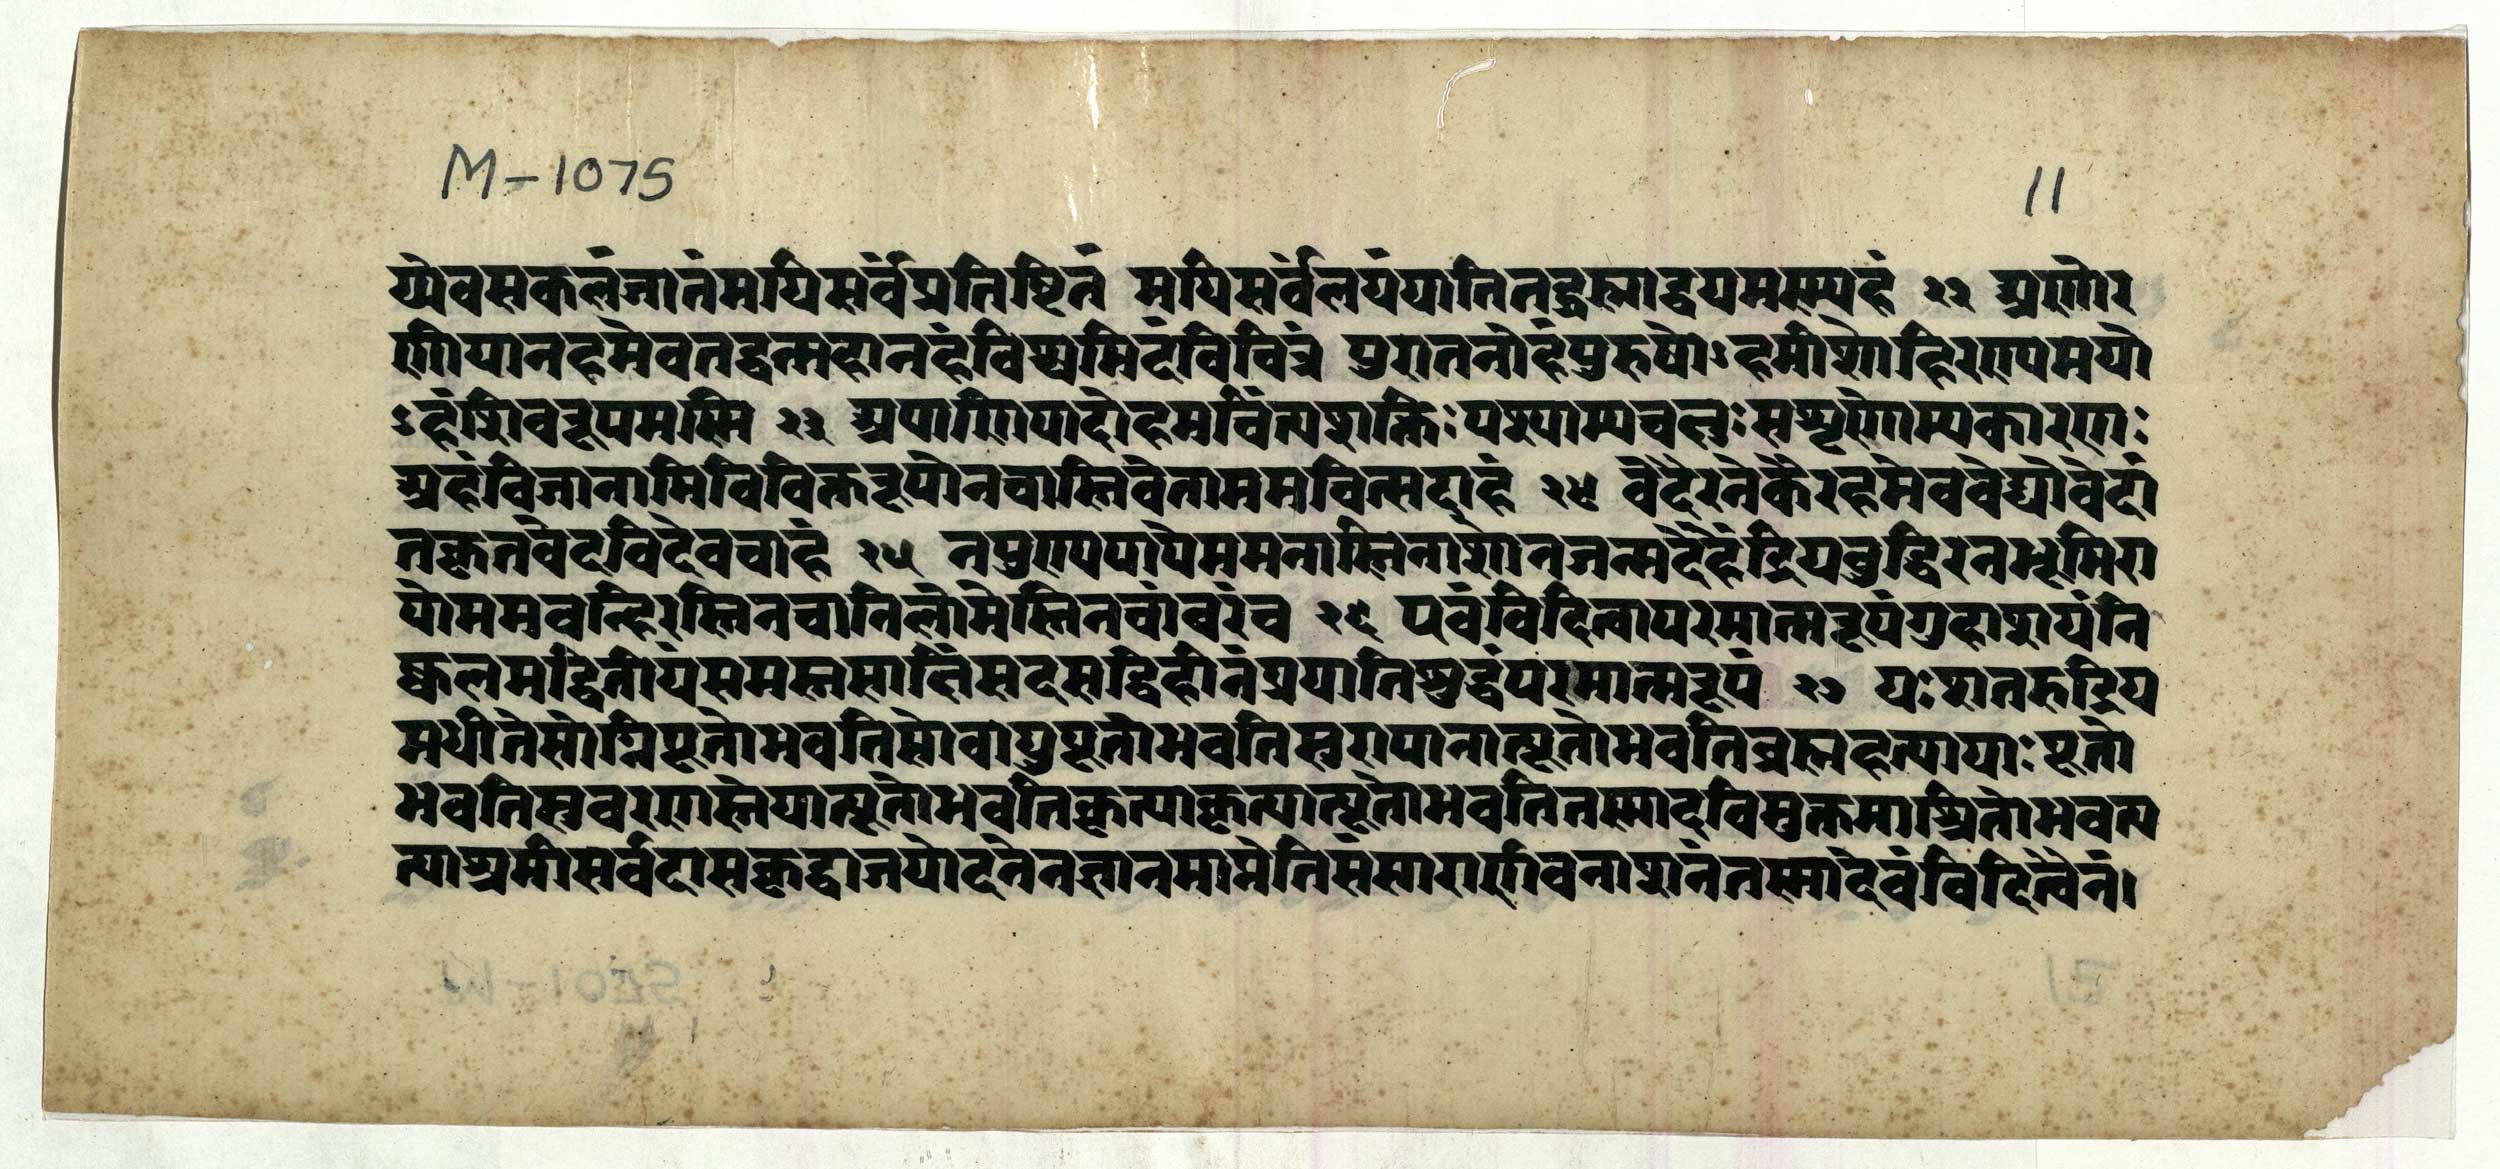 M-1075
11
य्येवसकलंजातंमयिसर्वंप्रतिष्टितं मयिसर्वंलयंयातितद्ब्रह्माद्वयमस्म्यहं २२ अणोर
णीयानहमेवतद्वन्महानहंविश्वमिदंविचित्रं पुरातनोहंपुरुषोऽहमीशोहिरण्यमयो
ऽहंशिवरूपमस्मि २३ अपाणिपादोहमचिंत्यशक्तिः पश्याम्यचक्षुः सशृणोम्यकारणः
अहंविजानामिविविक्तरूपोनचास्तिवेतामममचित्सदाहं २४ वेदैरनेकैरहमेववेद्योवेदां
तकृतवेदविदेवचाहं २५ नपुण्यपापेममनास्तिनाशोनजन्मदेहेंद्रियबुद्धिरनभूमिरा
पोममवन्हिरस्तिनचानिलोमेस्तिनचांबरंच २६ एवंविदित्वापरमात्मरूपंगुहाशयंनि
ष्कलमद्वितीयंसमस्तसाक्षिंसदसद्विहीनंप्रयातिशुद्धंपरमात्मरूपं २७ यः शतरुद्रिय
मधीतेसोग्निपूतोभवतिसोवापुपूतोभवतिसुरापानात्पूतोभवतिब्रह्महत्यायाः पूतो
भवतिसुवरणस्तेयात्पूतोभवतिकृत्याकृत्यात्पूतोभवतितस्मादविमुक्तमाश्रितोभवत्य
त्याश्रमीसर्वदासकृद्वाजयोदनेनज्ञानमाप्नेतिसंसारार्णवनाशनंतस्मादेवंविदित्वैनं।